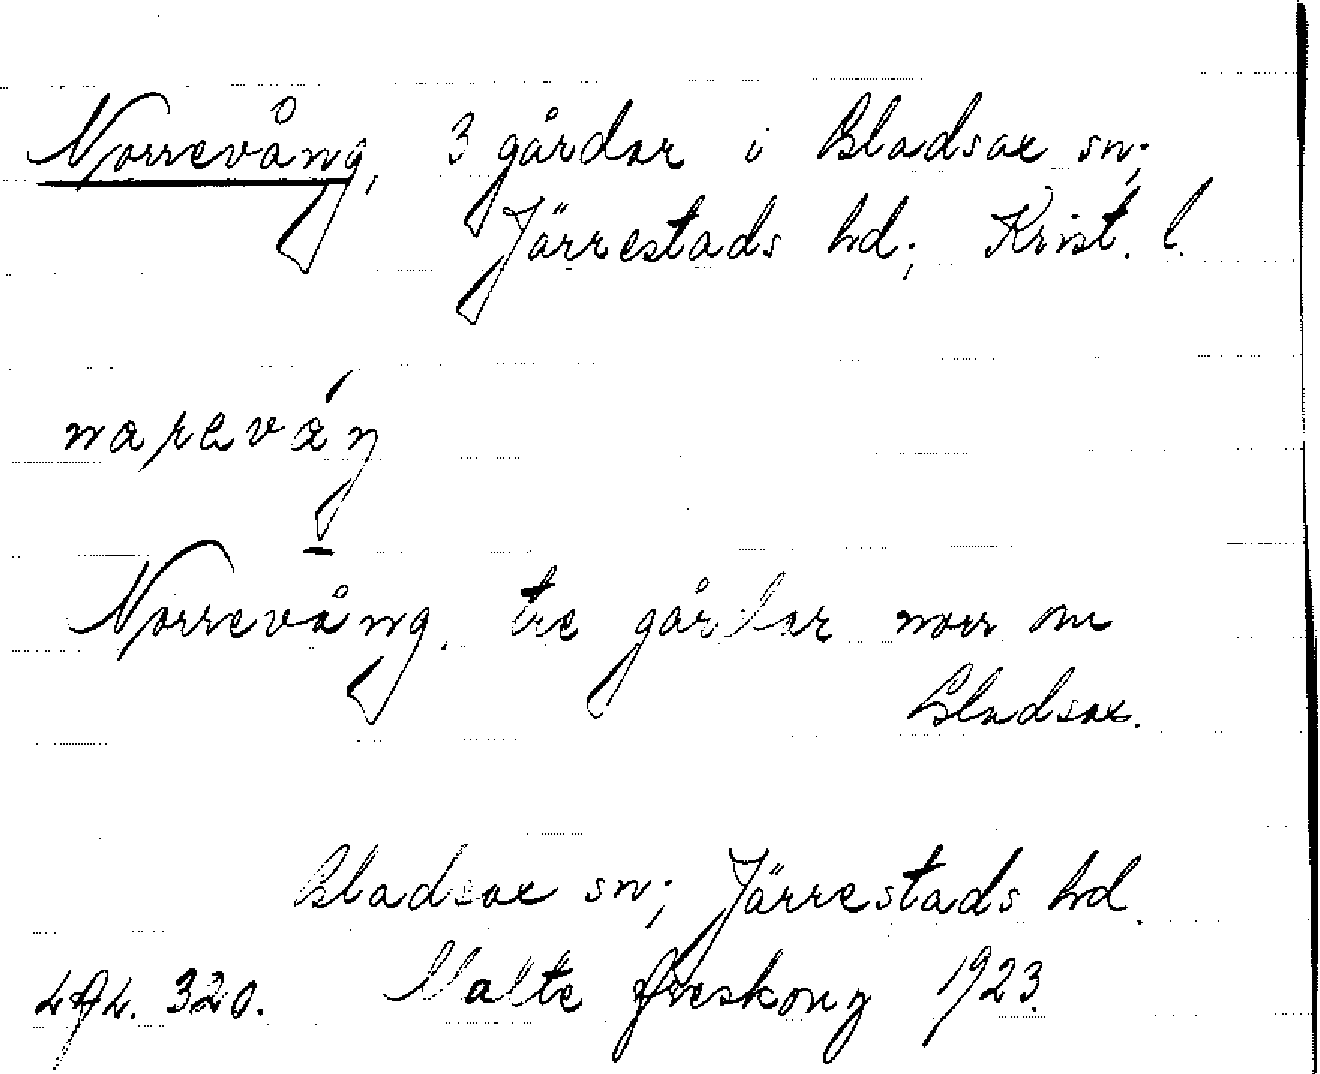 Norrevång, 3 gårdar i Gladsax sn;
Järrestads hd; Krist. l.
Norrevång. tre gårdar norr om
Gladsax.
Gladsax sn; Järrestads hd.
320. Malte 1923.